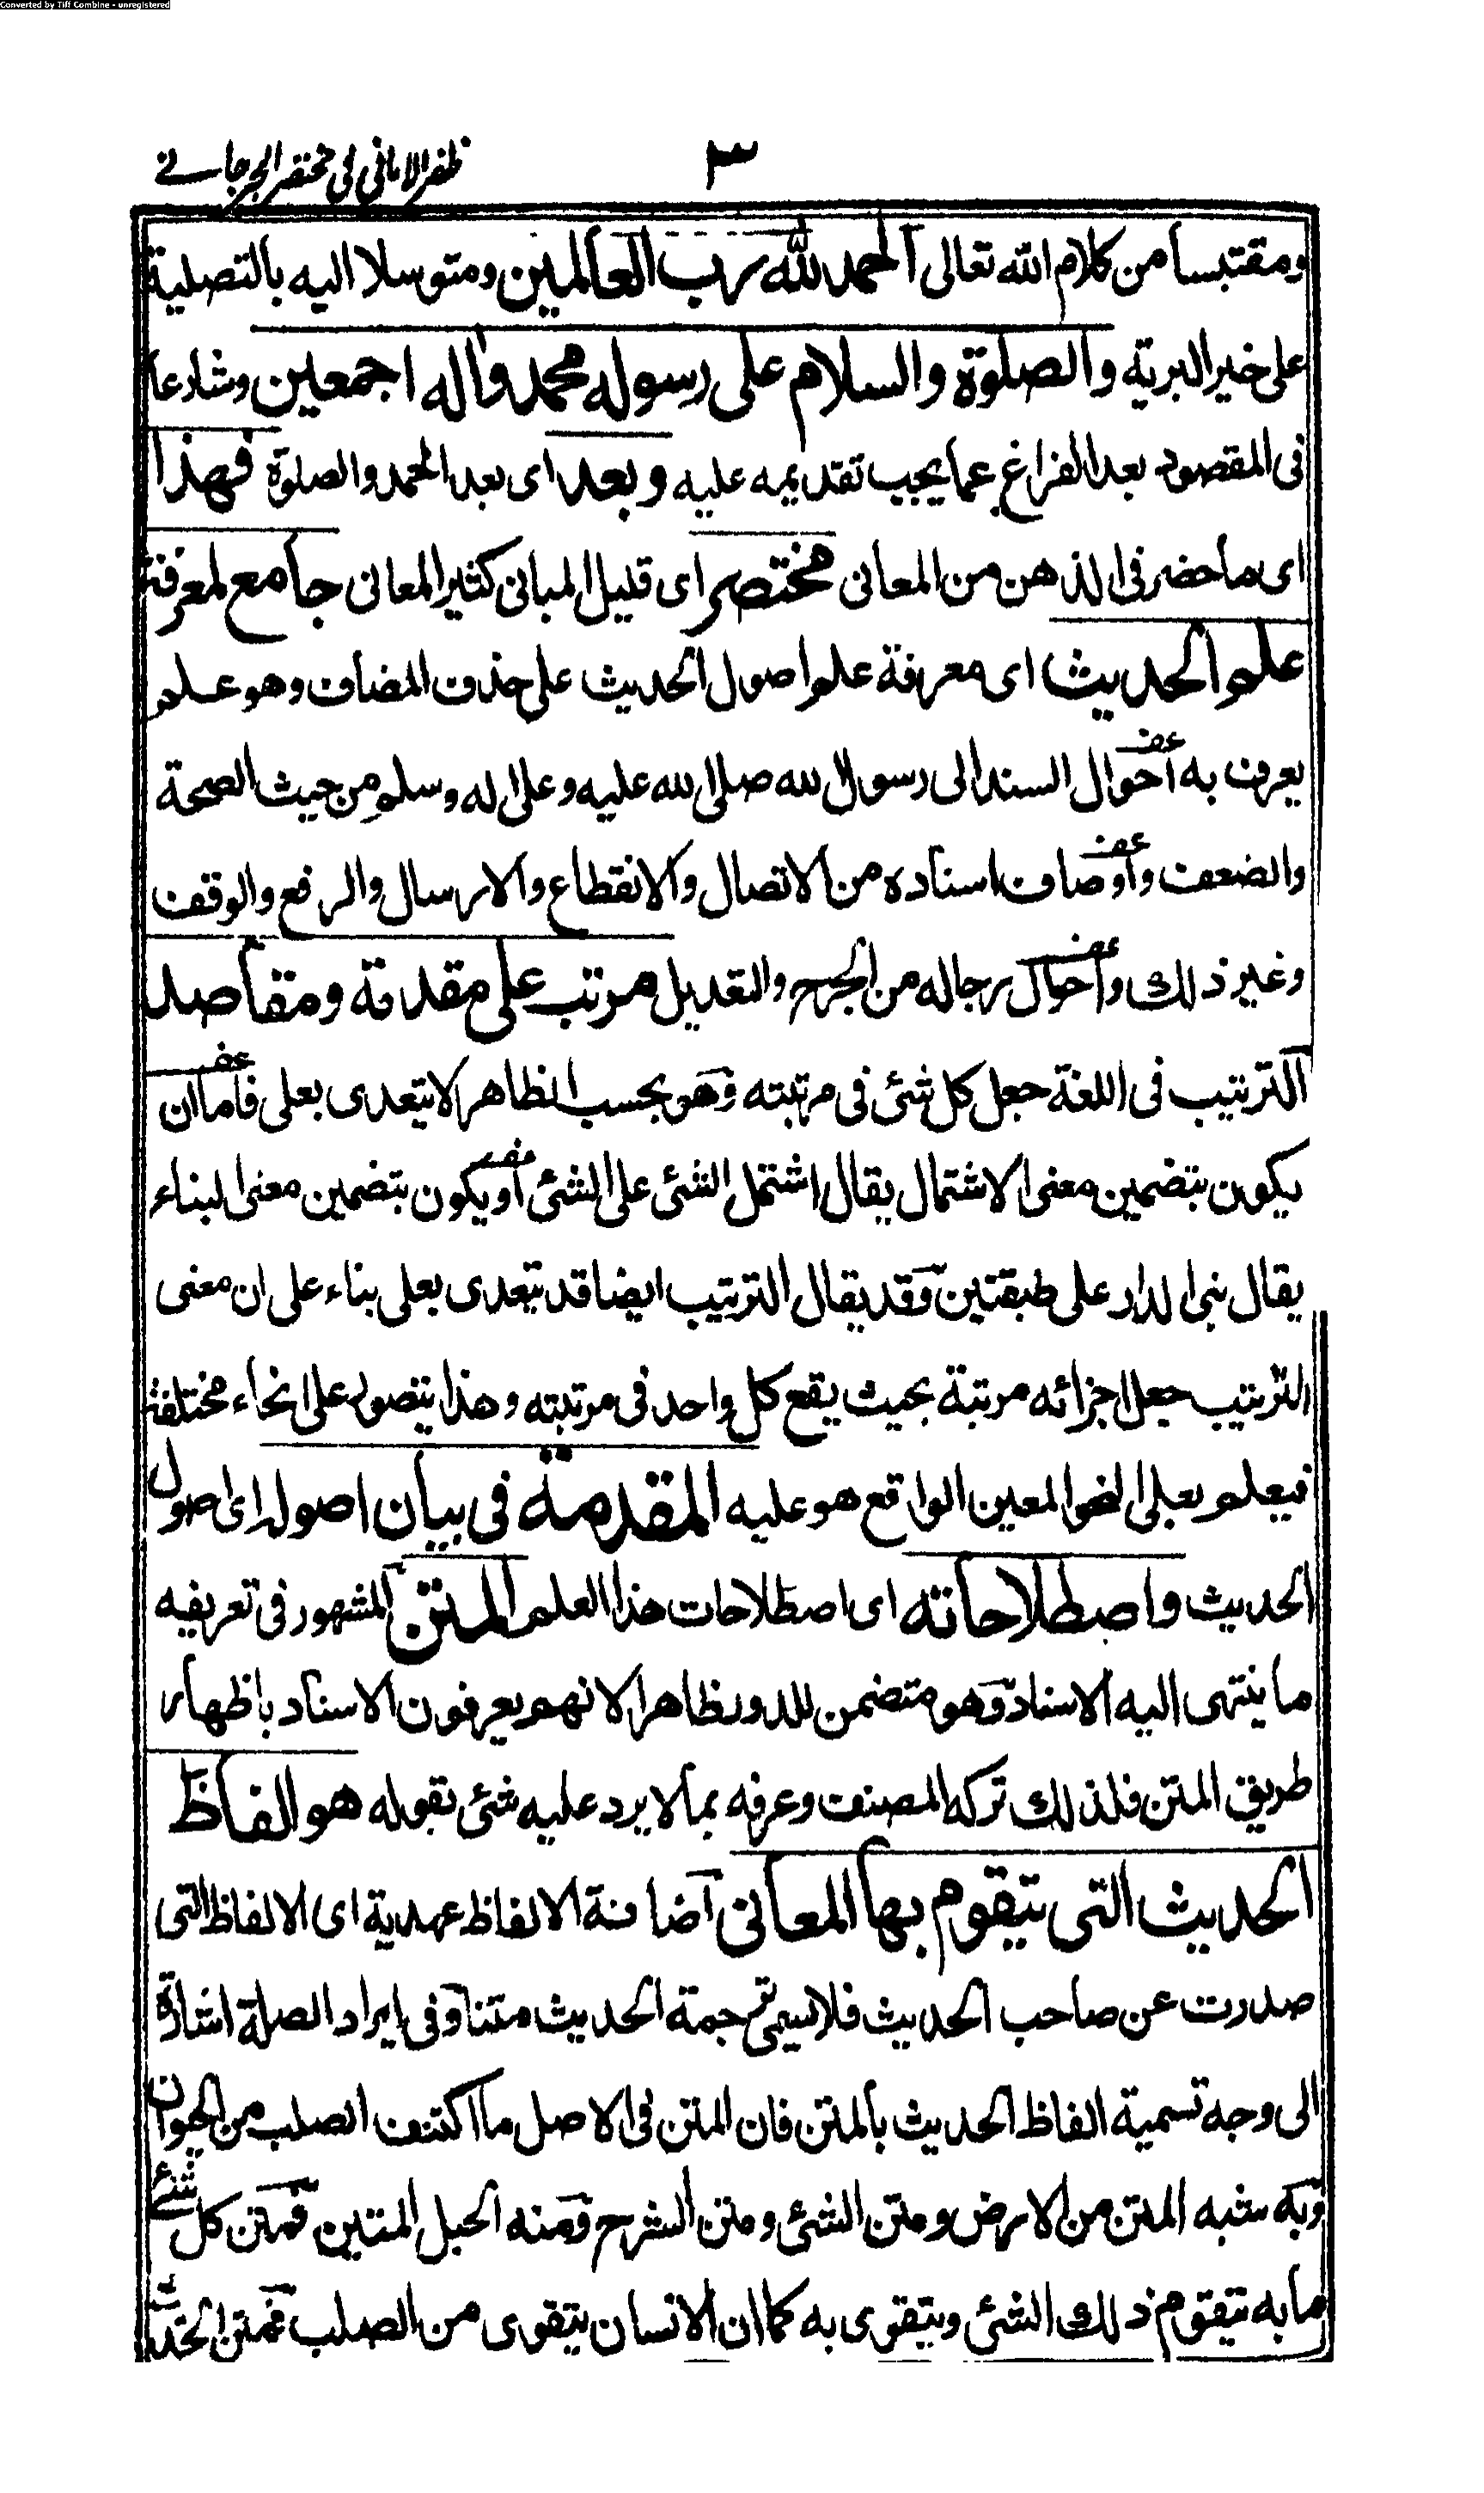 Converted by Tiff Combine - unregistered
٣ ظفر الامانی فی مختصر الجرجانے
ومقتبسا من كلام الله تعالى الحمد لله رب العالمين ومتوسلا اليه بالتصلية
على خير البرية والصلوة والسلام على رسوله محمد واله اجمعين وشارعا
فى المقصود بعد الفراغ عما يجب تقديمه عليه وبعد اى بعد الحمد والصلوة فهذا
اى ما حضر فى الذهن من المعانى مختصر اى قليل المبانى كثير المعانى جامع لمعرفة
علم الحديث اى معرفة علم اصول الحديث على حذف المضاف وهو علم
يعرف به احوال السند الى رسول الله صلى الله عليه وعلى اله وسلم من حيث الصحة
والضعف واوصاف اسناده من الاتصال والانقطاع والارسال والرفع والوقف
وغير ذلك واحوال رجاله من الجرح والتعديل مرتب على مقدمة ومقاصد
الترتيب فى اللغة جعل كل شئ فى مرتبته وهو بحسب الظاهر لا يتعدى بعلى فاما ان
يكون بتضمين معنى الاشتمال يقال اشتمل الشئ على الشئ او يكون بتضمين معنى البناء
يقال بنى الدار على طبقتين وقد يقال الترتيب ايضا قد يتعدى بعلى بناء على ان معنى
الترتيب جعل اجزائه مرتبة بحيث يقع كل واحد فى مرتبته وهذا يتصور على انحاء مختلفة
فيعلم بعلى النحو المعين الواقع هو عليه المقدمة فى بيان اصوله اى اصول
الحديث واصطلاحاته اى اصطلاحات هذا العلم المتن المشهور فى تعريفه
ما ينتهى اليه الاسناد وهو متضمن للدور ظاهرا لانهم يعرفون الاسناد باظهار
طريق المتن فلذلك تركه المصنف وعرفه بما لا يرد عليه شئ بقوله هو الفاظ
الحديث التى يتقوم بها المعانى اضافة الالفاظ عهدية اى الالفاظ التى
صدرت عن صاحب الحديث فلا يسمى ترجمة الحديث متنا وفى ايراد الصلة اشارة
الى وجه تسمية الفاظ الحديث بالمتن فان المتن فى الاصل ما اكتنف الصلب من الحيوان
وبه شبه المتن من الارض ومتن الشئ ومتن الشرح ومنه الحبل المتين فمتن كل شئ
ما به يتقوم ذلك الشئ ويتقوى به كما ان الانسان يتقوى من الصلب فمتن الحديث